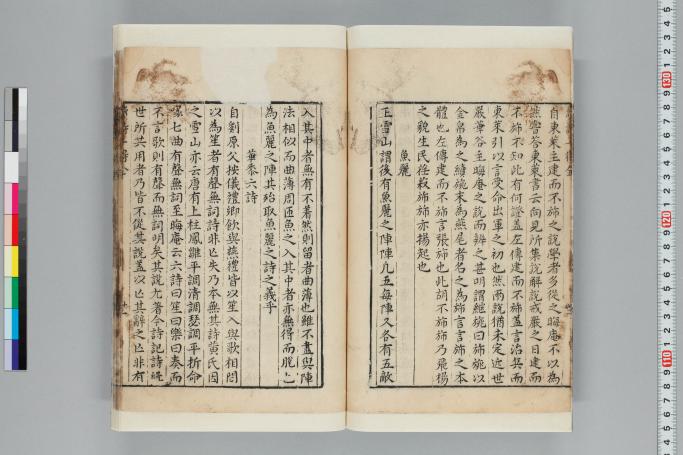 自東萊主建而不斾之說學者多從之晦庵不以為
然嘗答東萊書云向見所集說解說戒嚴之日建而
不斾不知此有何證蓋左傳建而不斾蓋言治兵而
東萊引以言受命出軍之初也然兩說猶未定近世
嚴華谷主晦庵之說而辨之甚明謂繼旐曰斾旐以
全帛為之續旐末為燕尾者名之為斾言言斾之本
體也左傳建而不斾言張斾也此詞不斾斾乃飛揚
之貌生民荏菽斾斾亦揚起也
魚麗
王雪山謂後有魚麗之陣陣凡五每陣又各有五敵
入其中者無有不著然則留者曲薄也雖不盡與陣
法相似而曲薄周匝魚之入其中者亦無得而脫之
為魚麗之陣其殆取魚麗之詩之義乎
華黍六詩
自劉原父按儀禮鄉飲與燕禮皆以笙入與歌相間
以為笙者有聲無詞詩非亡失乃本無其詩黃氏因
之雪山亦云唐有上柱鳳雛平調清調瑟調平折命
啄七曲有聲無詞至晦庵云六詩曰笙曰樂曰奏而
不言歌則有聲而無詞明矣其說尤著今詩記詩緝
世所共用者乃皆不從其說蓋以亡其辭之亡非有